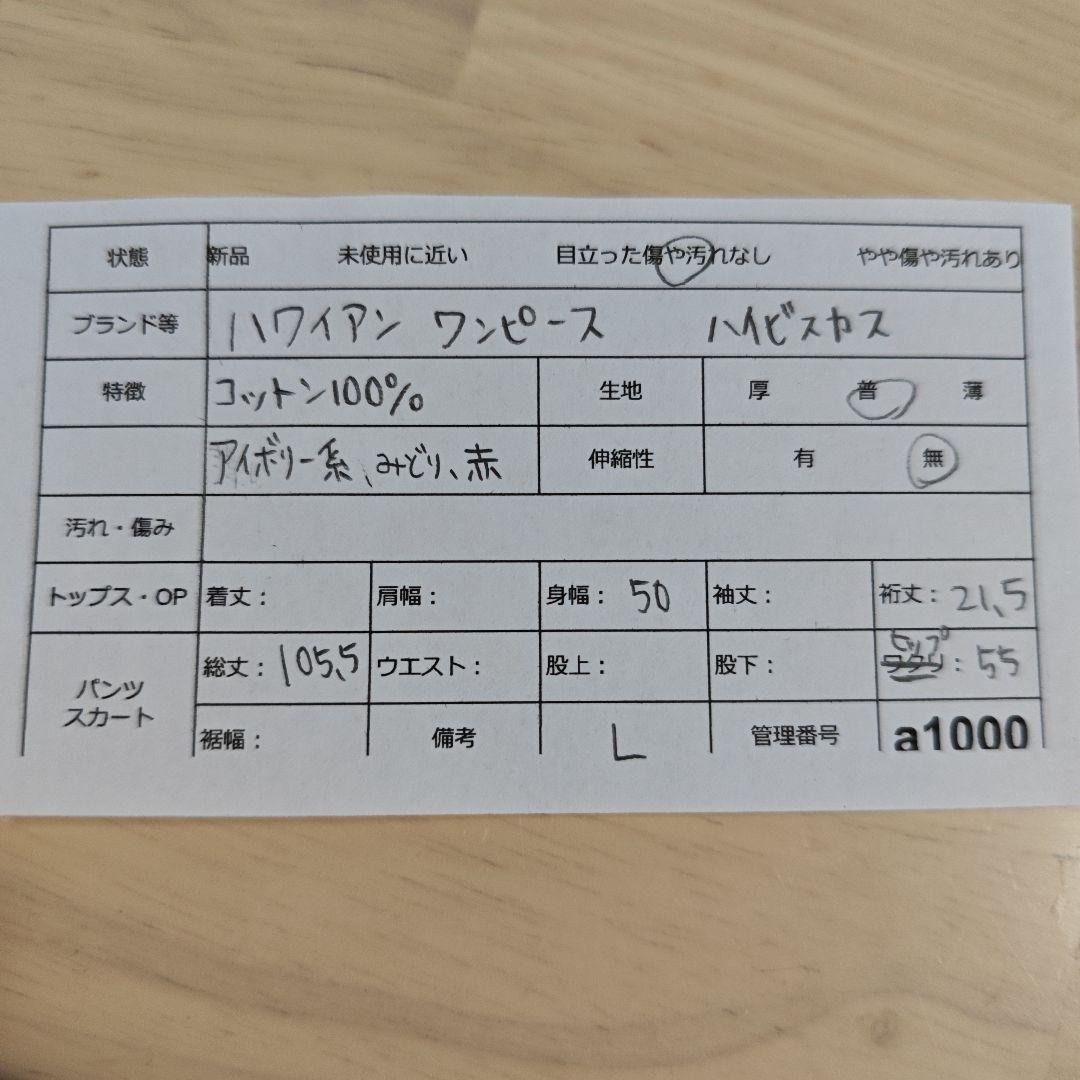 状態 新品 未使用に近い 目立った傷や汚れなし やや傷や汚れあり
ブランド等 ハワイアン ワンピース ハイビスカス
特徴 コットン100% 生地 厚 普 薄
アイボリー系、みどり、赤 伸縮性 有 無
汚れ・傷み
トップス・OP 着丈： 肩幅： 身幅： 50 袖丈： 裄丈： 21,5
ヒップ
パンツ 総丈： 105,5 ウエスト： 股上： 股下： ワタリ： 55
スカート
裾幅： 備考 L 管理番号 a1000